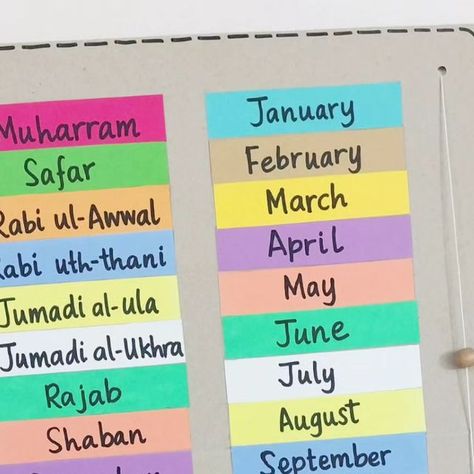 Muharram
Safar
Rabi ul-Awwal
Rabi uth-thani
Jumadi al-ula
Jumadi al-Ukhra
Rajab
Shaban
January
February
March
April
May
June
July
August
September